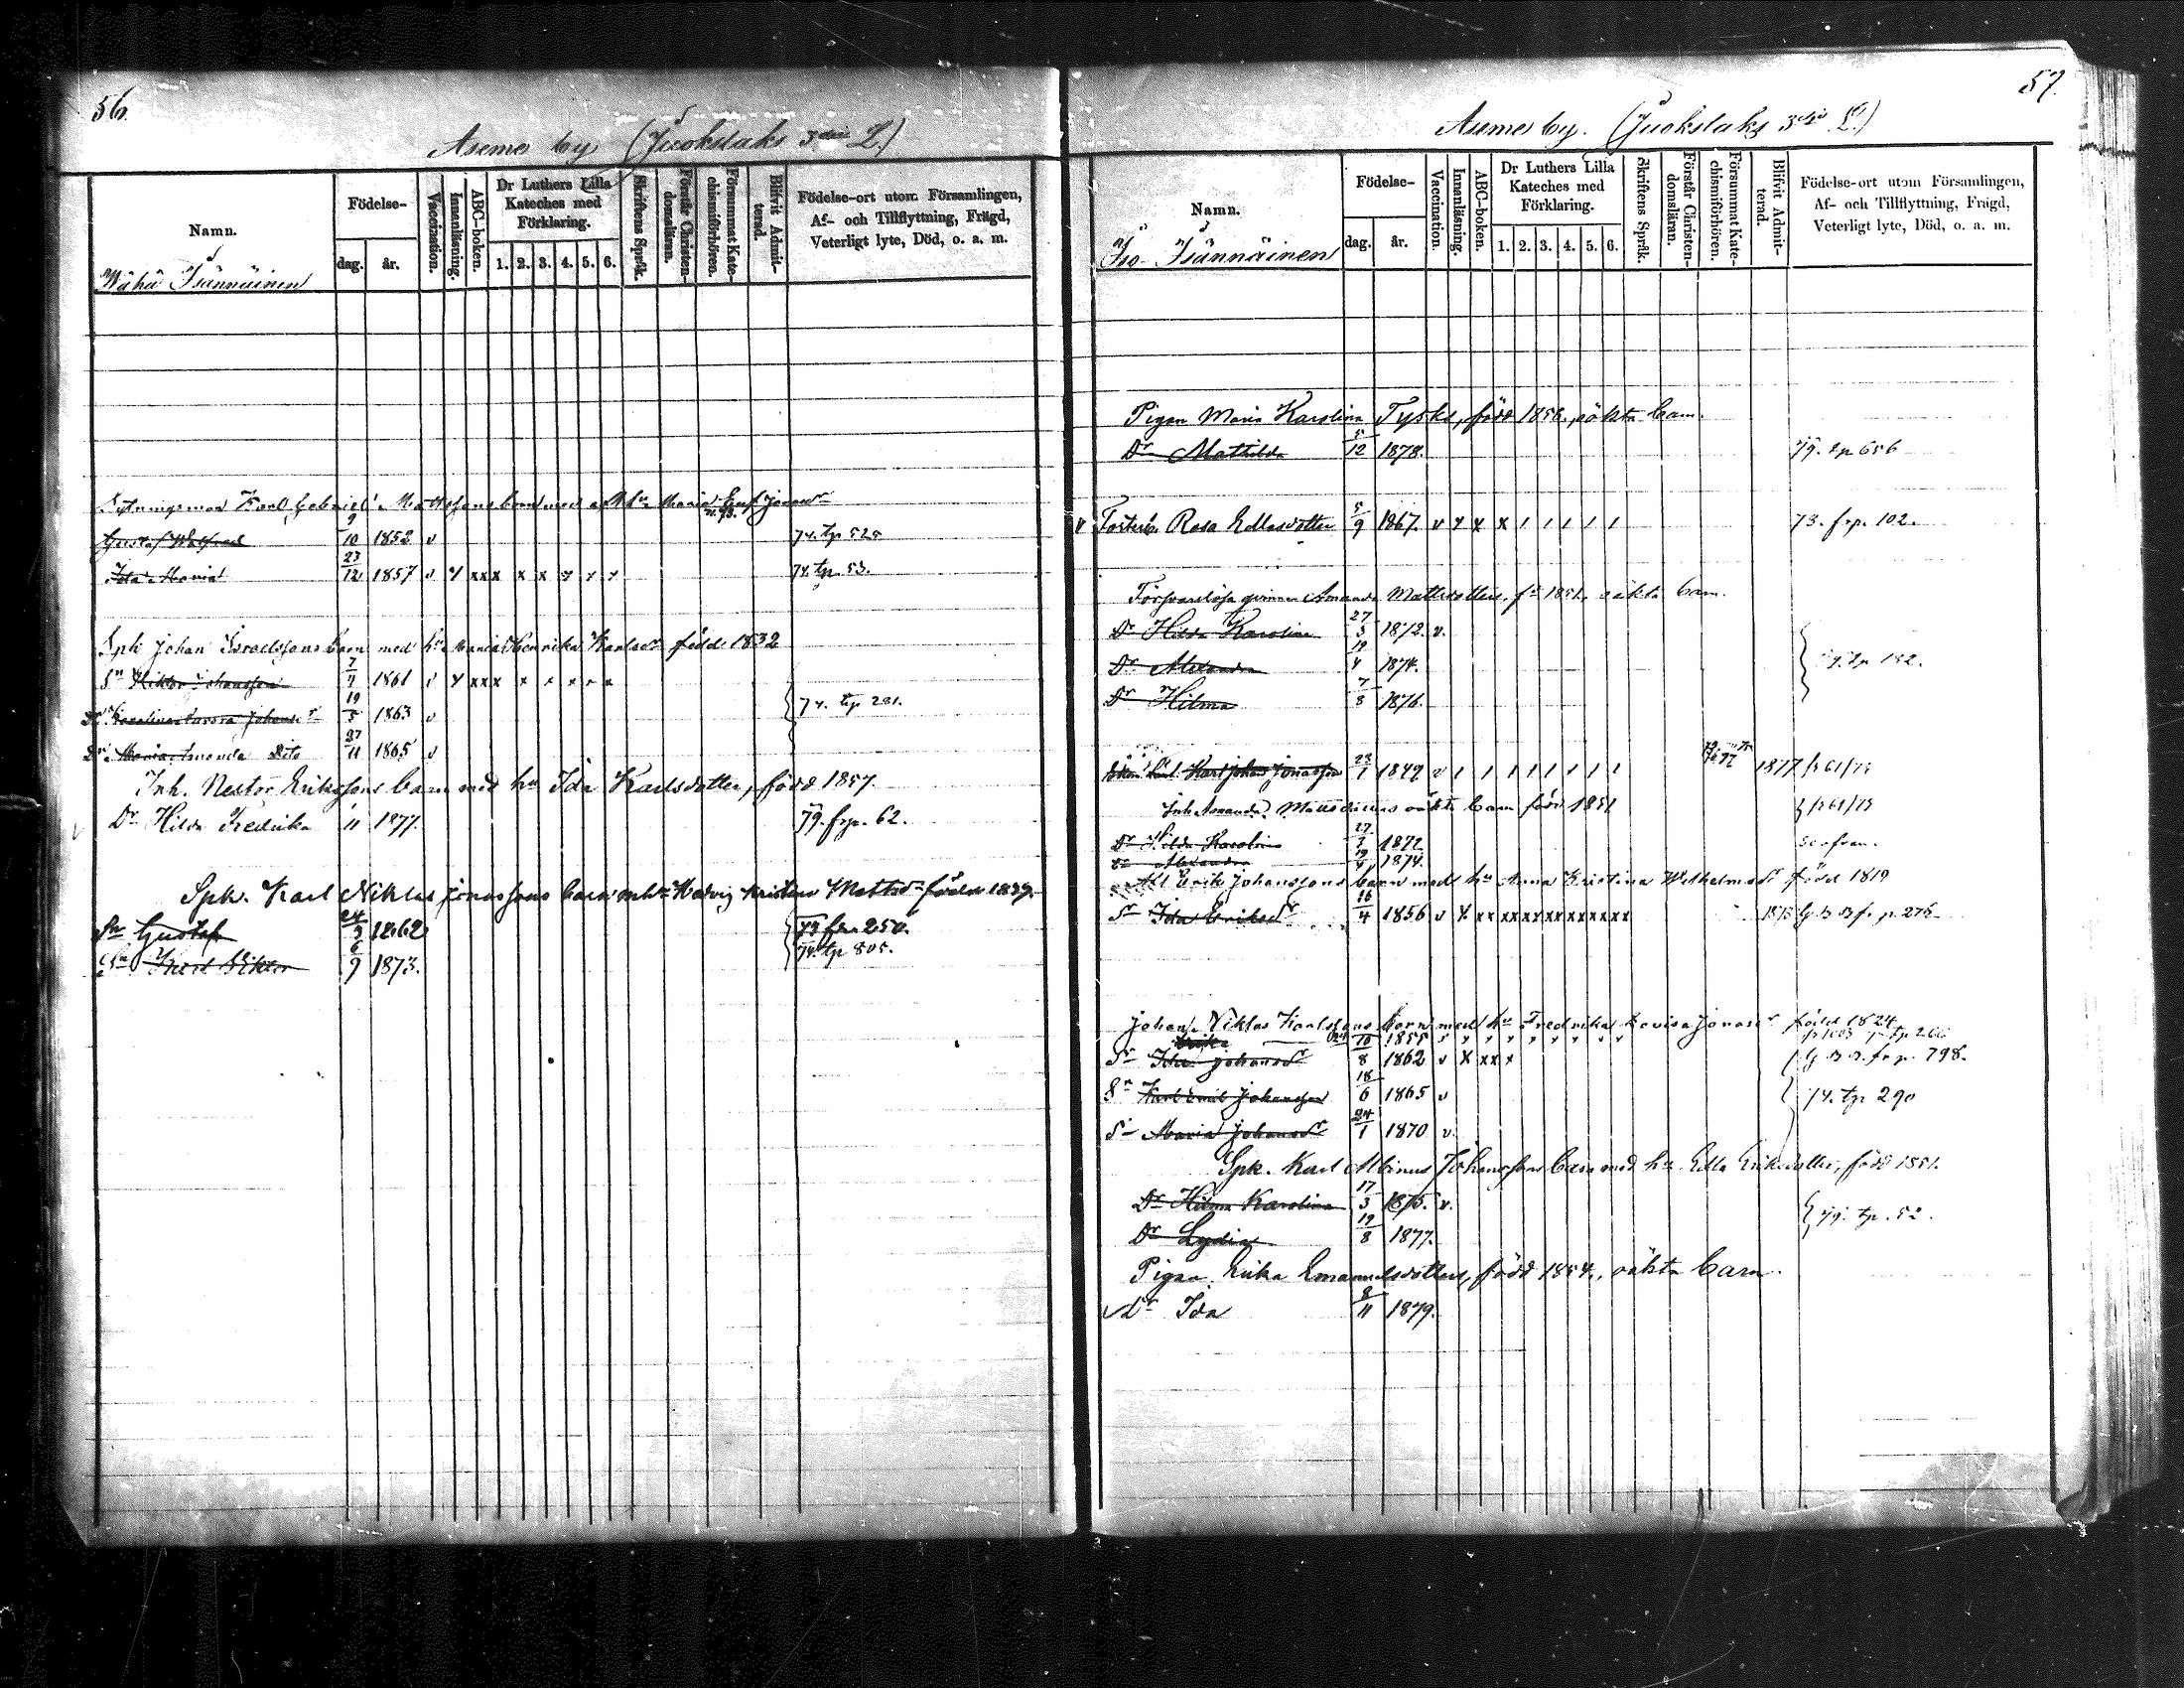 56.
Asemes by (Juokslaks 3die L.)
Namn.
Födelse-
dag.
år.
Vaccination.
Innanläsning.
ABC-boken.
Dr Luthers Lilla Kateches med Förklaring.
1. 2. 3. 4. 5. 6.
Skriftens Språk.
Förstår Christendomsläran.
Försummat Katechismiförhören.
Blifvit Admitterad.
Födelse-ort utom Församlingen,
Af- och Tillflyttning, Frägd,
Veterligt lyte, Död, o. a. m.
Wähä Isännäinen
Karl Gabriel Mattssons barn med Maria
Gustaf Walfred 9/10 1852 v 74. tp 525
Ida Maria 23/12 1857 v x xxx x x x x x 74. tp. 53.
Spk Johan Israelssons barn med hu Maria Henrika Karlsdr född 1832
Sn Viktor Johansson 7/7 1861 v x xxx x x x x x
Dr Karolina Aurora Johansdr 19/5 1863 v 74. tp 281.
Dr Maria Amanda Dito 27/11 1865 v
Inh. Nestor Erikssons barn med hu Ida Karlsdotter, född 1857.
Dr Hilda Fredrika 11 1877. 79. frp. 62.
Spk. Karl Niklas Jonassons barn m hu Hedvig Kristina Mattsdr född 1839.
Sn Gustaf 24/3 1862 250.
Sn Karl Viktor 6/9 1873. 74. tp 805.
57.
Asemes by. (Juokslaks 3die L.)
Namn.
Födelse-
dag.
år.
Vaccination.
Innanläsning.
ABC-boken.
Dr Luthers Lilla Kateches med Förklaring.
1. 2. 3. 4. 5. 6.
Skriftens Språk.
Förstår Christendomsläran.
Försummat Katechismiförhören.
Blifvit Admitterad.
Födelse-ort utom Församlingen,
Af- och Tillflyttning, Frägd,
Veterligt lyte, Död, o. a. m.
Iso- Isännäinen
Pigan Maria Karolina Tysks, född 1856, oäkta barn.
Dr Mathilda 5/12 1878. 79. tp 656
v Rosa Edlasdotter 5/9 1867. v x x x / / / / / 73. frp. 102.
Försvarslösa qvinnan Amanda Mattsdotters, f. 1851, oäkta barn.
Dr Hilda Karolina 27/3 1872. v.
Dr Alexandra 19/4 1874. tp 182.
Dr Hilma 7/8 1876.
Karl Johan Jonasson 28/1 1849 v / / / / / / / / 1877 61/73
Inh Amanda Mattsdotters oäkta barn född 1851 61/73
Dr Hilda Karolina 27/3 1872
Dr Alexandra 19/4 1874.
Erik Johanssons barn med hu Anna Kristina Wilhelmsdr född 1819
Dr Ida Eriksdr 16/4 1856 v x xx xxxxxxxxxxx 1873 276
Johan Niklas Karlssons barn med hu Fredrika Lovisa Jonasdr född 1824
Erika 10 1855 tp 266
Dr Ida Johansdr 8 1862 v x xxx 798.
Sn Karl Emil Johansson 18/6 1865 v 74. tp 290
Dr Maria Johansdr 24/1 1870 v.
Spk. Karl Albinus Johanssons barn med hu Edla Eriksdotter, född 1851.
Dr Hilma Karolina 17/3 1875. v.
Dr Lydia 19/8 1877. 79. tp. 52.
Pigan Erika Emanuelsdotters, född 1854, oäkta barn.
Dr Ida 8/11 1879.